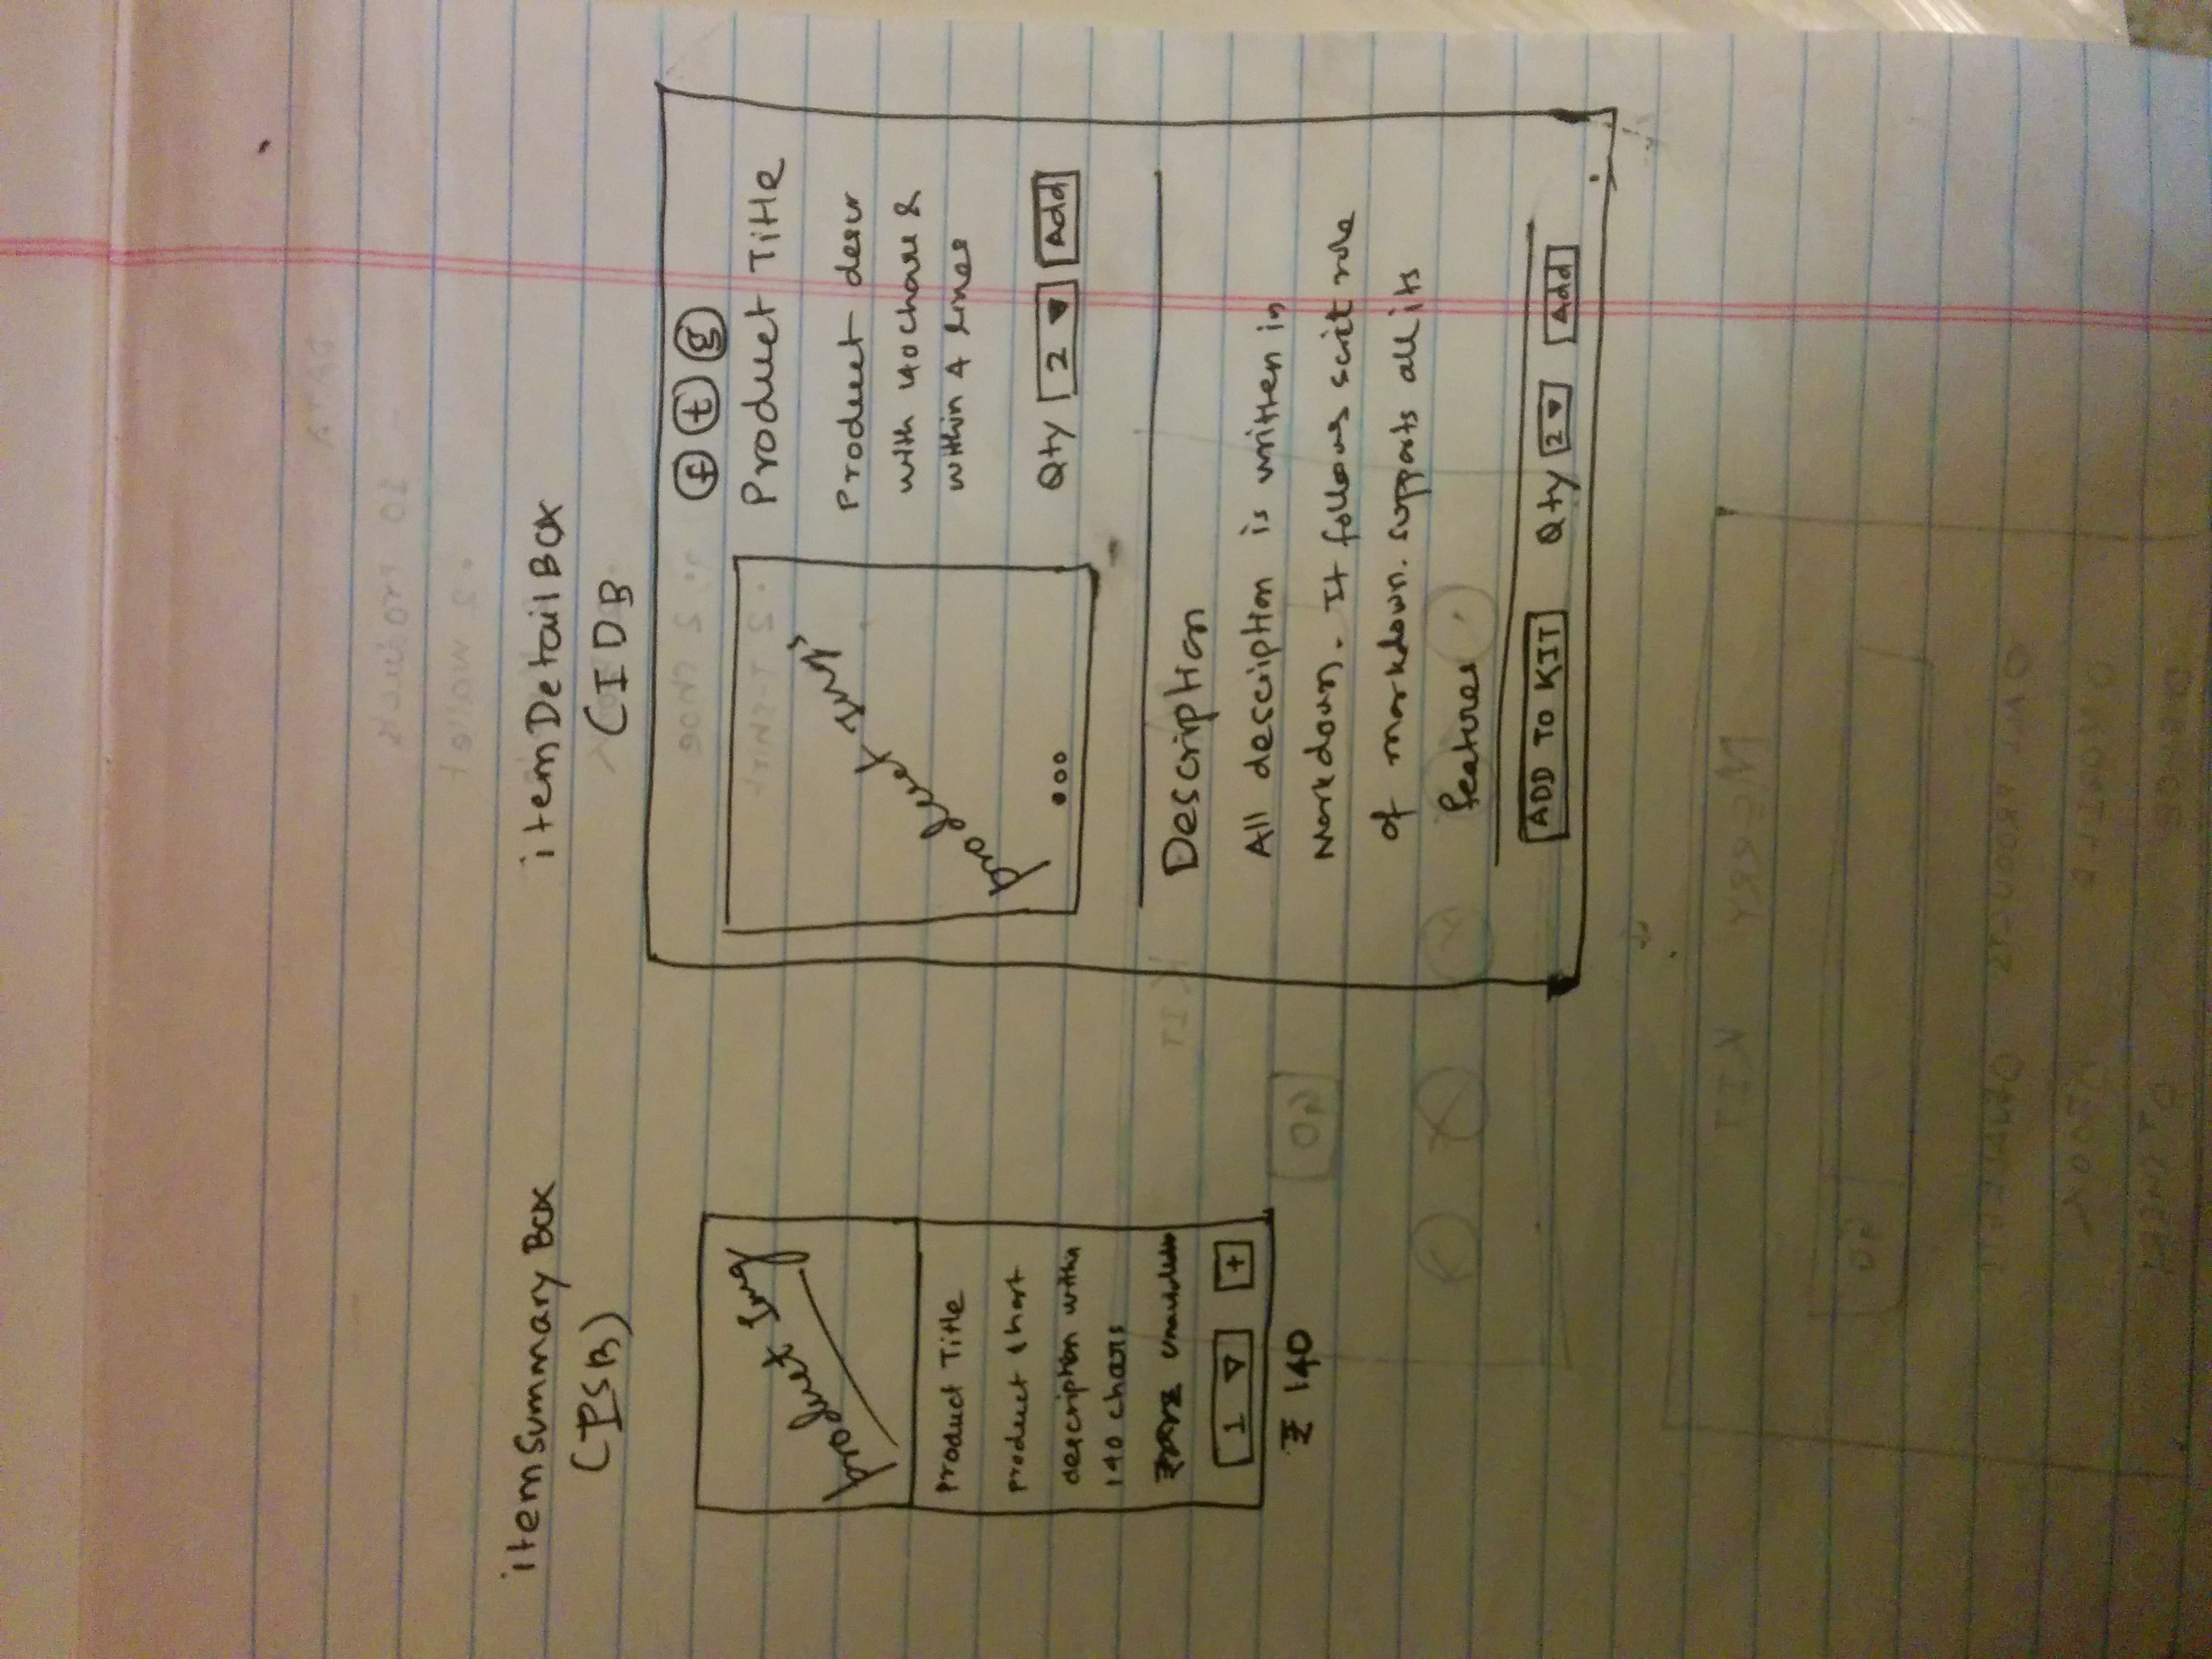 itemSummaryBox
(ISB)
product img
Product Title
product short
description within
140 chars
1
+
₹ 140
itemDetailBox
(IDB
f t g
Product Title
Product descr
with 140 chars &
within 4 lines
Qty 2 Add
product img
Description
All desciption is written in
Markdown. It follows scrit rule
of markdown. supports all its
features
ADD TO KIT Qty 2 Add